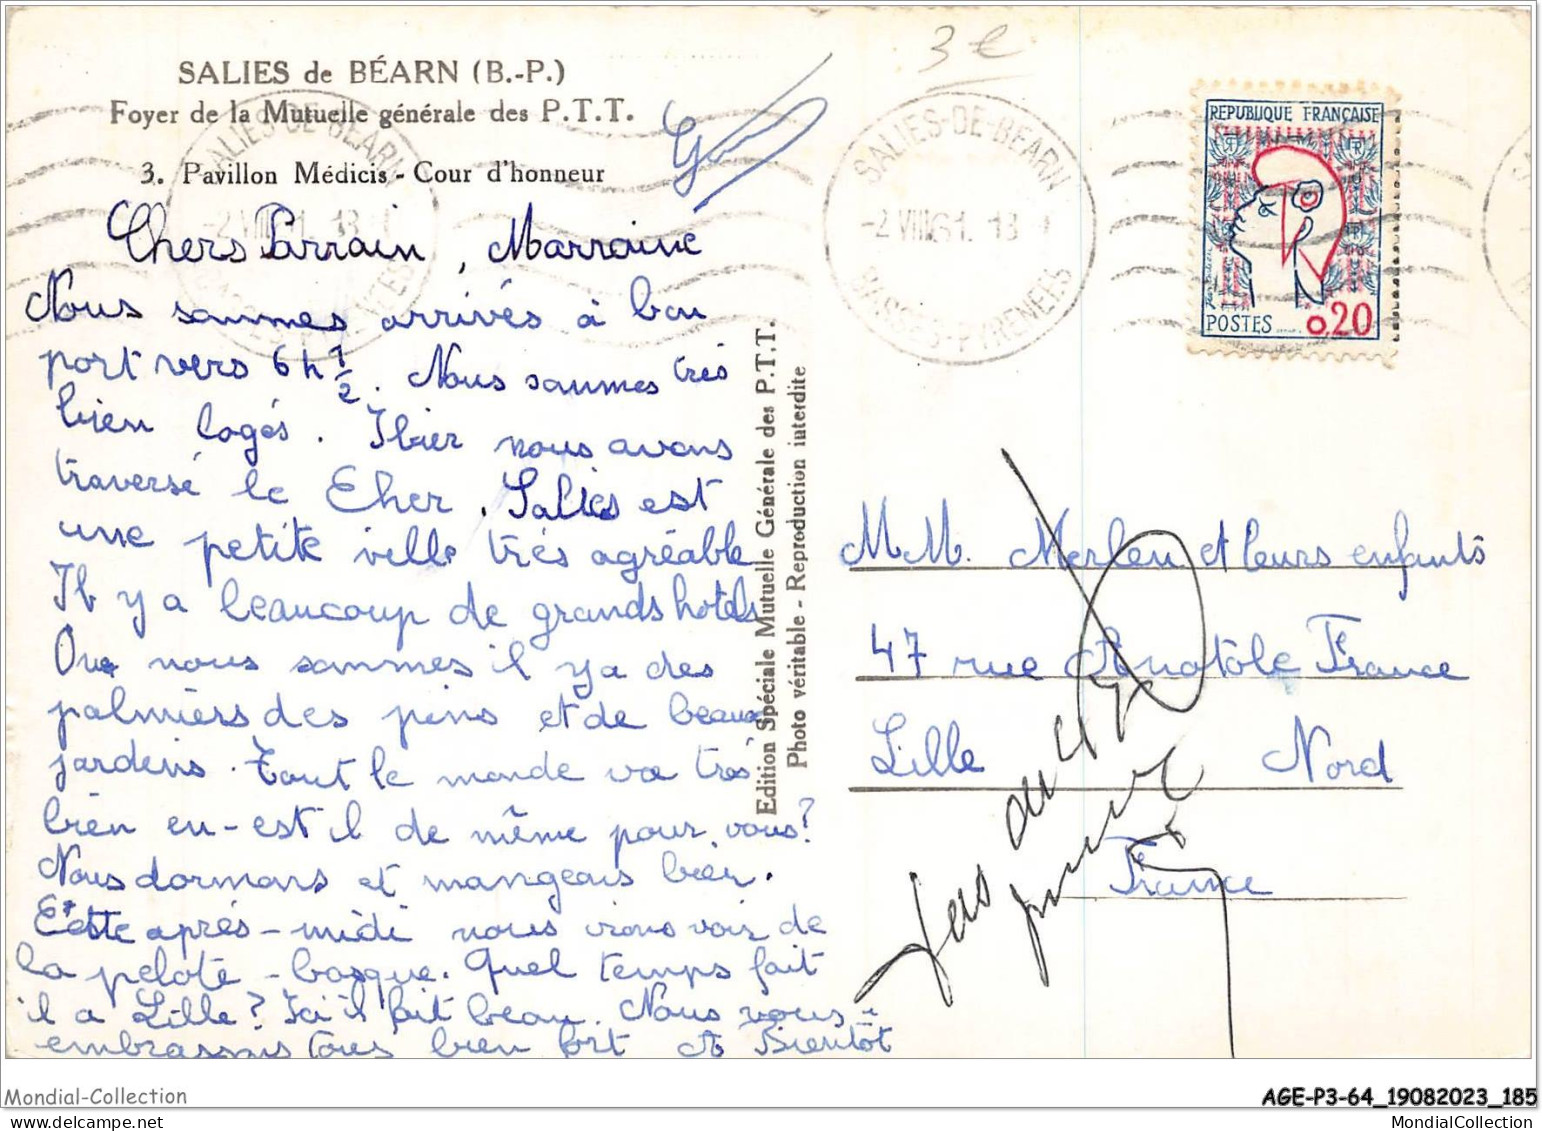 SALIES de BÉARN (B.-P.)
Foyer de la Mutuelle générale des P.T.T.
3. Pavillon Médicis - Cour d'honneur
3 €
SALIES-DE-BEARN
-2 VIII 61. 13
BASSES-PYRENEES
SALIES-DE-BEARN
-2 VIII 61. 13
BASSES-PYRENEES
REPUBLIQUE FRANÇAISE
POSTES 0,20
Chers Parrain, Marraine
Nous sommes arrivés à bon
port vers 6 h 1/2. Nous sommes très
bien logés. Ihier nous avons
traversé le Eher. Salies est
une petite ville très agréable
Il y a beaucoup de grands hotels
Ou nous sommes il y a des
palmiers des pins et de beaux
jardins. Tout le monde va très
bien en-est il de même pour vous?
Nous dormons et mangeons bien.
Cette après-midi nous irons voir de
la pelote-basque. Quel temps fait
il a Lille? Ici il fait beau. Nous vous
embrassons tous bien fort A Bientôt
Edition Spéciale Mutuelle Générale des P.T.T.
Photo véritable - Reproduction interdite
M.M. Merlen et leurs enfants
47 rue Anatole France
Lille Nord
France
pas au 47
Mondial-Collection
AGE-P3-64_19082023_185
MondialCollection